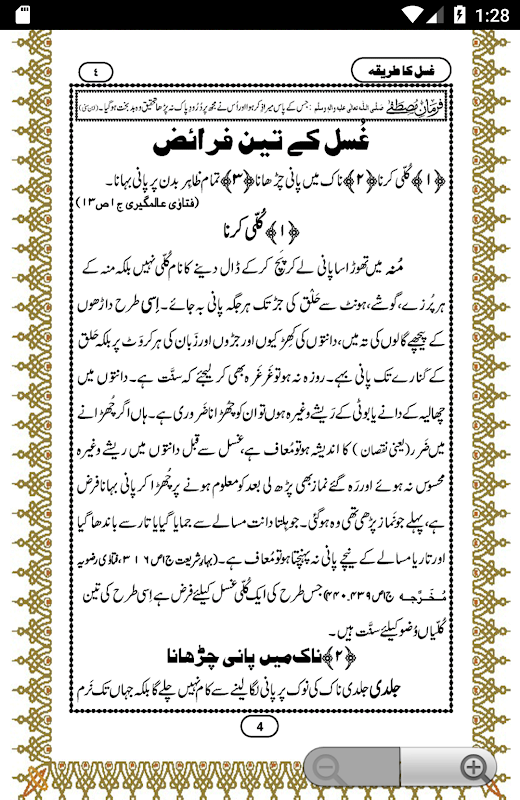 1:28
غسل کا طریقہ ٤
فرمانِ مصطفٰے صلی اللہ تعالٰی علیہ والہ وسلم : جس کے پاس میرا ذکر ہوا اور اُس نے مجھ پر دُرُودِ پاک نہ پڑھا تحقیق وہ بد بخت ہو گیا۔ (ابن سنی)
غُسل کے تین فرائض
﴿۱﴾ کُلّی کرنا ﴿۲﴾ ناک میں پانی چڑھانا ﴿۳﴾ تمام ظاہر بدن پر پانی بہانا۔
(فتاوٰی عالمگیری ج۱ ص۱۳)
﴿۱﴾ کُلّی کرنا
مُنہ میں تھوڑا سا پانی لے کر پَچ کر کے ڈال دینے کا نام کُلّی نہیں بلکہ منہ کے
ہر پُرزے، گوشے، ہونٹ سے حَلْق کی جڑ تک ہر جگہ پانی بہ جائے۔ اِسی طرح داڑھوں
کے پیچھے گالوں کی تہ میں، دانتوں کی کِھڑکیوں اور جڑوں اور زَبان کی ہر کروٹ پر بلکہ حَلْق
کے کَنارے تک پانی بہے۔ روزہ نہ ہو تو غَرغَرہ بھی کر لیجئے کہ سنَّت ہے۔ دانتوں میں
چھالیہ کے دانے یا بوٹی کے رَیشے وغیرہ ہوں تو ان کو چُھڑانا ضَروری ہے۔ ہاں اگر چُھڑانے
میں ضَرَر (یعنی نقصان ) کا اندیشہ ہو تو مُعاف ہے، غسل سے قبل دانتوں میں ریشے وغیرہ
محسوس نہ ہوئے اور رَہ گئے نماز بھی پڑھ لی بعد کو معلوم ہونے پر چُھڑا کر پانی بہانا فرض
ہے، پہلے جو نَماز پڑھی تھی وہ ہو گئی۔ جو ہلتا دانت مسالے سے جمایا گیا یا تار سے باندھا گیا
اور تار یا مسالے کے نیچے پانی نہ پہنچتا ہو تو مُعاف ہے۔ (بہارِ شریعت ج۱ ص۳۱۶، فتاوٰی رضویہ
مُخَرَّجہ ج۱ ص۴۳۹،۴۴۰) جس طرح کی ایک کُلّی غسل کیلئے فرض ہے اِسی طرح کی تین
کُلّیاں وُضو کیلئے سنَّت ہیں۔
﴿۲﴾ ناک میں پانی چڑھانا
جلدی جلدی ناک کی نوک پر پانی لگا لینے سے کام نہیں چلے گا بلکہ جہاں تک نَرم
4